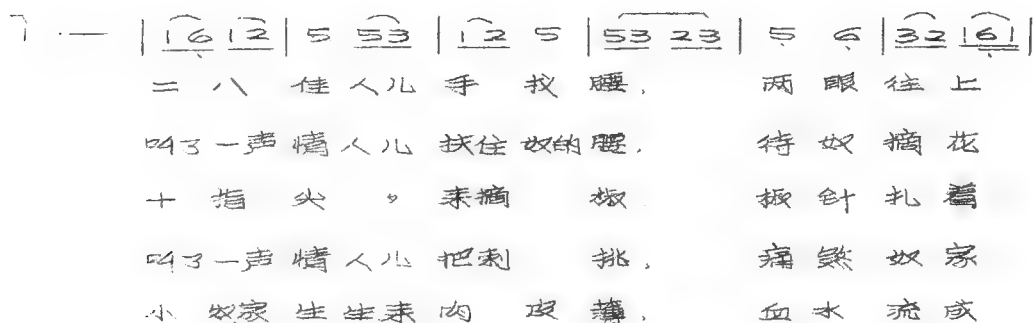 1 - | 1 6 1 2 | 5 5 3 | 1 2 5 | 5 3 2 3 | 5 6 | 3 2 1 6 1 |
二 八 佳 人儿 手 扠 腰， 两 眼 往 上
叫了一声 情 人儿 扶住 奴的 腰， 待 奴 摘 花
十 指 尖 〃 来摘 椒 椒 针 扎 着
叫了一声 情 人儿 把刺 挑， 痛 煞 奴 家
小 奴家 生 生来 肉 皮 薄， 血 水 流 成